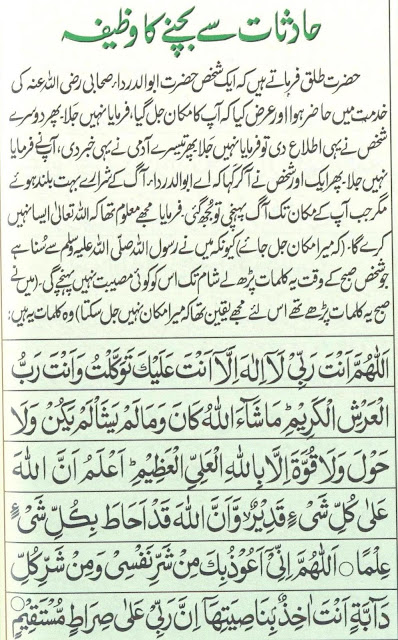 حادثات سے بچنے کا وظیفہ
حضرت طلق فرماتے ہیں کہ ایک شخص حضرت ابوالدرداء صحابی رضی اللہ عنہ کی
خدمت میں حاضر ہوا اور عرض کیا کہ آپ کا مکان جل گیا، فرمایا نہیں جلا۔ پھر دوسرے
شخص نے یہی اطلاع دی تو فرمایا نہیں جلا۔ پھر تیسرے آدمی نے یہی خبر دی، آپ نے فرمایا
نہیں جلا۔ پھر ایک اور شخص نے آکر کہا کہ اے ابوالدرداء۔ آگ کے شرارے بہت بلند ہوئے
مگر جب آپ کے مکان تک آگ پہنچی تو بجھ گئی۔ فرمایا مجھے معلوم تھا کہ اللہ تعالیٰ ایسا نہیں
کرے گا۔ (کہ میرا مکان جل جائے) کیونکہ میں نے رسول اللہ صلی اللہ علیہ وسلم سے سُنا ہے
جو شخص صبح کے وقت یہ کلمات پڑھ لے شام تک اس کو کوئی مصیبت نہیں پہنچے گی۔ (میں نے
صبح یہ کلمات پڑھے تھے اس لئے مجھے یقین تھا کہ میرا مکان نہیں جل سکتا) وہ کلمات یہ ہیں:
اَللّٰهُمَّ اَنْتَ رَبِّيْ لَآ اِلٰهَ اِلَّا اَنْتَ عَلَيْكَ تَوَكَّلْتُ وَاَنْتَ رَبُّ
الْعَرْشِ الْكَرِيْمِ ؕ مَاشَآءَ اللهُ كَانَ وَمَالَمْ يَشَاْ لَمْ يَكُنْ وَلَا
حَوْلَ وَلَا قُوَّةَ اِلَّا بِاللهِ الْعَلِيِّ الْعَظِيْمِ ؕ اَعْلَمُ اَنَّ اللهَ
عَلٰى كُلِّ شَيْءٍ قَدِيْرٌ وَّاَنَّ اللهَ قَدْ اَحَاطَ بِكُلِّ شَيْءٍ
عِلْمًا ○ اَللّٰهُمَّ اِنِّيْٓ اَعُوْذُ بِكَ مِنْ شَرِّ نَفْسِيْ وَمِنْ شَرِّ كُلِّ
دَآبَّةٍ اَنْتَ اٰخِذٌۢ بِنَاصِيَتِهَا ؕ اِنَّ رَبِّيْ عَلٰى صِرَاطٍ مُّسْتَقِيْمٍ ○